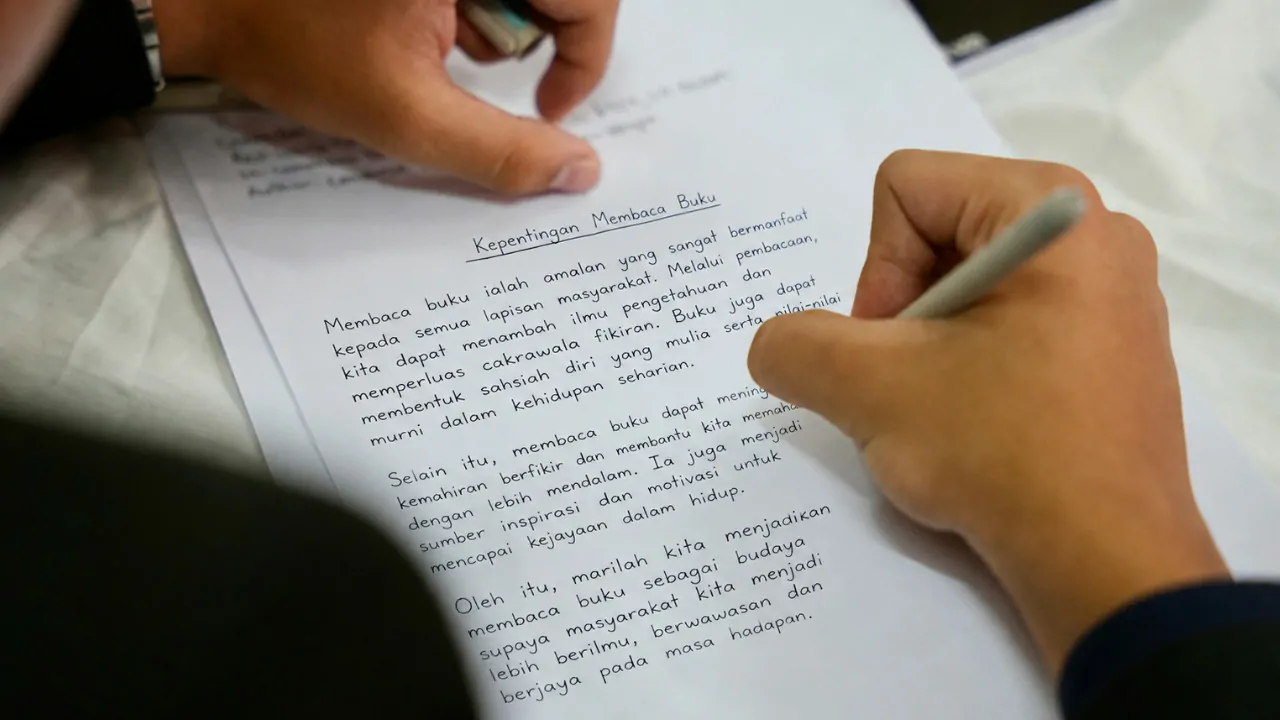 Kepentingan Membaca Buku
Membaca buku ialah amalan yang sangat bermanfaat
kepada semua lapisan masyarakat. Melalui pembacaan,
kita dapat menambah ilmu pengetahuan dan
memperluas cakrawala fikiran. Buku juga dapat
membentuk sahsiah diri yang mulia serta nilai-nilai
murni dalam kehidupan seharian.
Selain itu, membaca buku dapat
kemahiran berfikir dan membantu kita
dengan lebih mendalam. Ia juga menjadi
sumber inspirasi dan motivasi untuk
mencapai kejayaan dalam hidup.
Oleh itu, marilah kita menjadikan
membaca buku sebagai budaya
supaya masyarakat kita menjadi
lebih berilmu, berwawasan dan
berjaya pada masa hadapan.